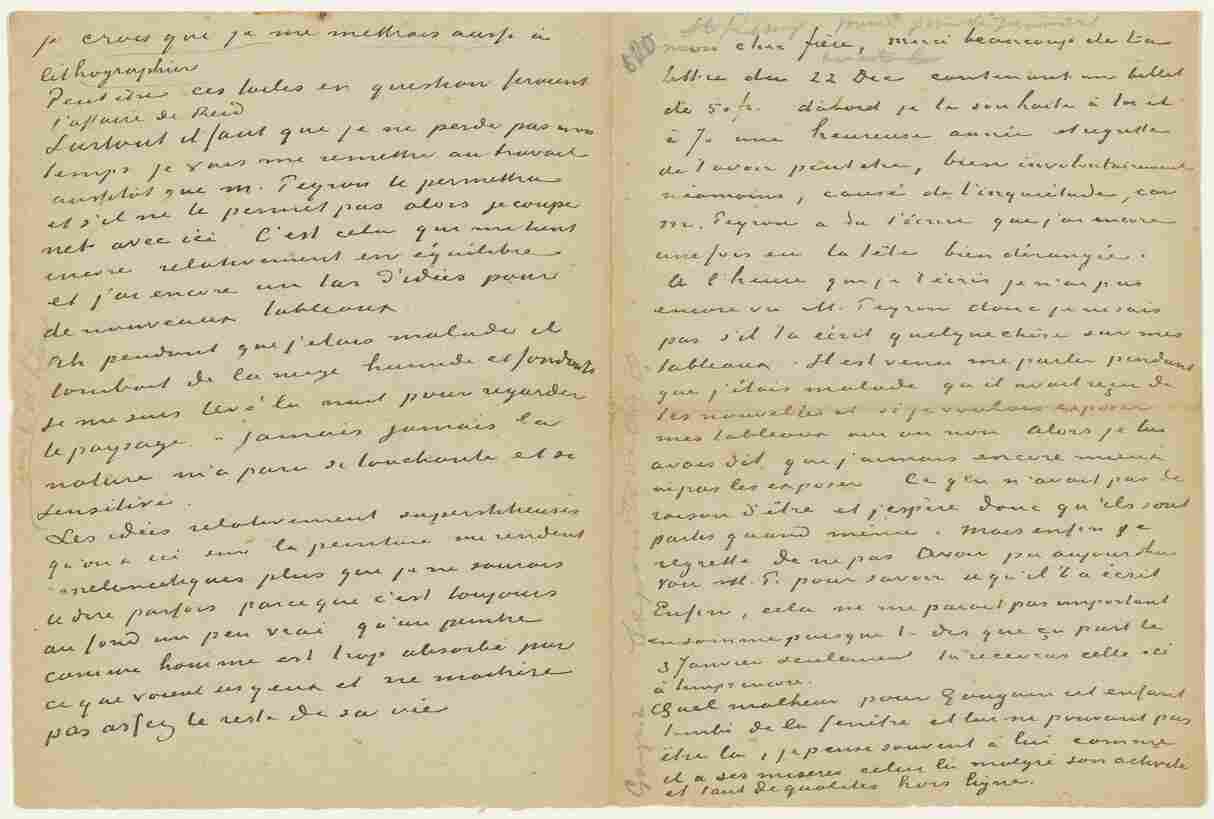 je crois que je me mettrais aussi à
lithographier
Peut être ces toiles en question feraient
l'affaire de Reid
Surtout il faut que je ne perde pas mon
temps je vais me remettre au travail
aussitôt que M. Peyron le permettra
et s'il ne le permet pas alors je coupe
net avec ici. C'est cela qui me tient
encore relativement en équilibre
et j'ai encore un tas d'idées pour
de nouveaux tableaux.
Ah pendant que j'étais malade il
tombait de la neige humide et fondante
je me suis levé la nuit pour regarder
le paysage – jamais jamais la
nature m'a paru si touchante et si
sensitive.
Les idées relativement superstitieuses
qu'on a ici sur la peinture me rendent
melancoliques plus que je ne saurais
te dire parfois parce que c'est toujours
au fond un peu vrai qu'un peintre
comme homme est trop absorbé par
ce que voient ses yeux et ne maitrise
pas assez le reste de sa vie
620
mon cher frère, merci beaucoup de ta
lettre du 22 Dec contenant un billet
de 50 fr. d'abord je te souhaite à toi et
à Jo une heureuse année et regrette
de t'avoir peutetre, bien involontairement
néamoins, causé de l'inquiétude, car
M. Peyron a du t'écrire que j'ai encore
une fois eu la tête bien dérangée.
A l'heure que je t'écris je n'ai pas
encore vu M. Peyron donc je ne sais
pas s'il t'a écrit quelquechôse sur mes
tableaux. Il est venu me parler pendant
que j'étais malade qu'il avait reçu de
tes nouvelles et si je voulais exposer
mes tableaux oui ou non. Alors je lui
avais dit que j'aimais encore mieux
ne pas les exposer Ce qui n'avait pas de
raison d'être et j'espère donc qu'ils sont
partis quand même. Mais enfin je
regrette de ne pas avoir pu aujourdhui
voir M. P. pour savoir ce qu'il t'a écrit
Enfin, cela ne me parait pas important
en somme puisque tu dis que ça part le
3 Janvier seulement tu recevras celle ci
à temps encore.
Quel malheur pour Gauguin cet enfant
tombé de la fenêtre et lui ne pouvant pas
être là, je pense souvent à lui comme
il a ses misères celui là malgré son activité
et tant de qualités hors ligne.